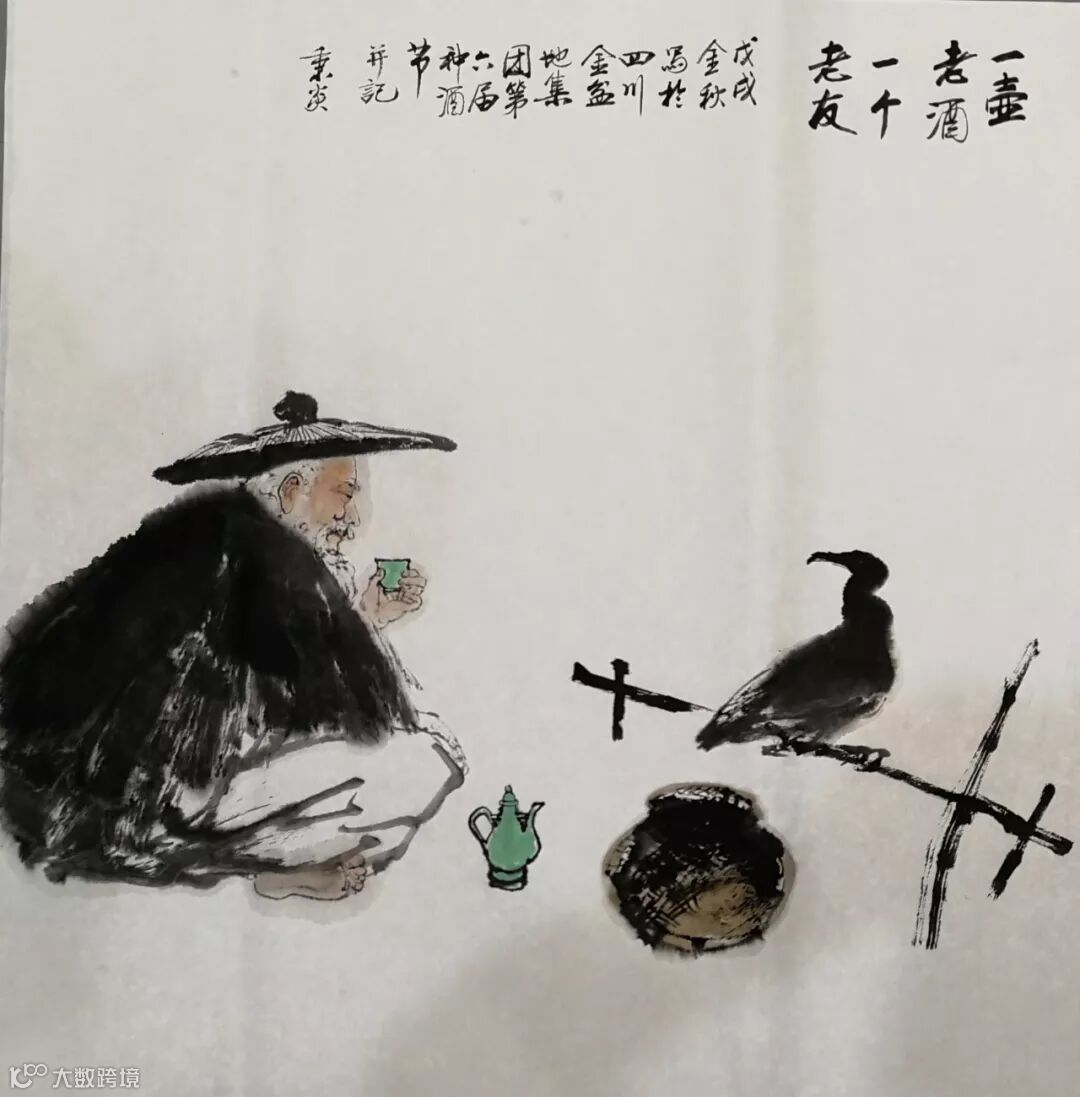 一壶
老酒
一个
老友
戊戌
金秋
写於
四川
金盆
地集
团第
六届
种酒
节
并記
秉炎
大数跨境